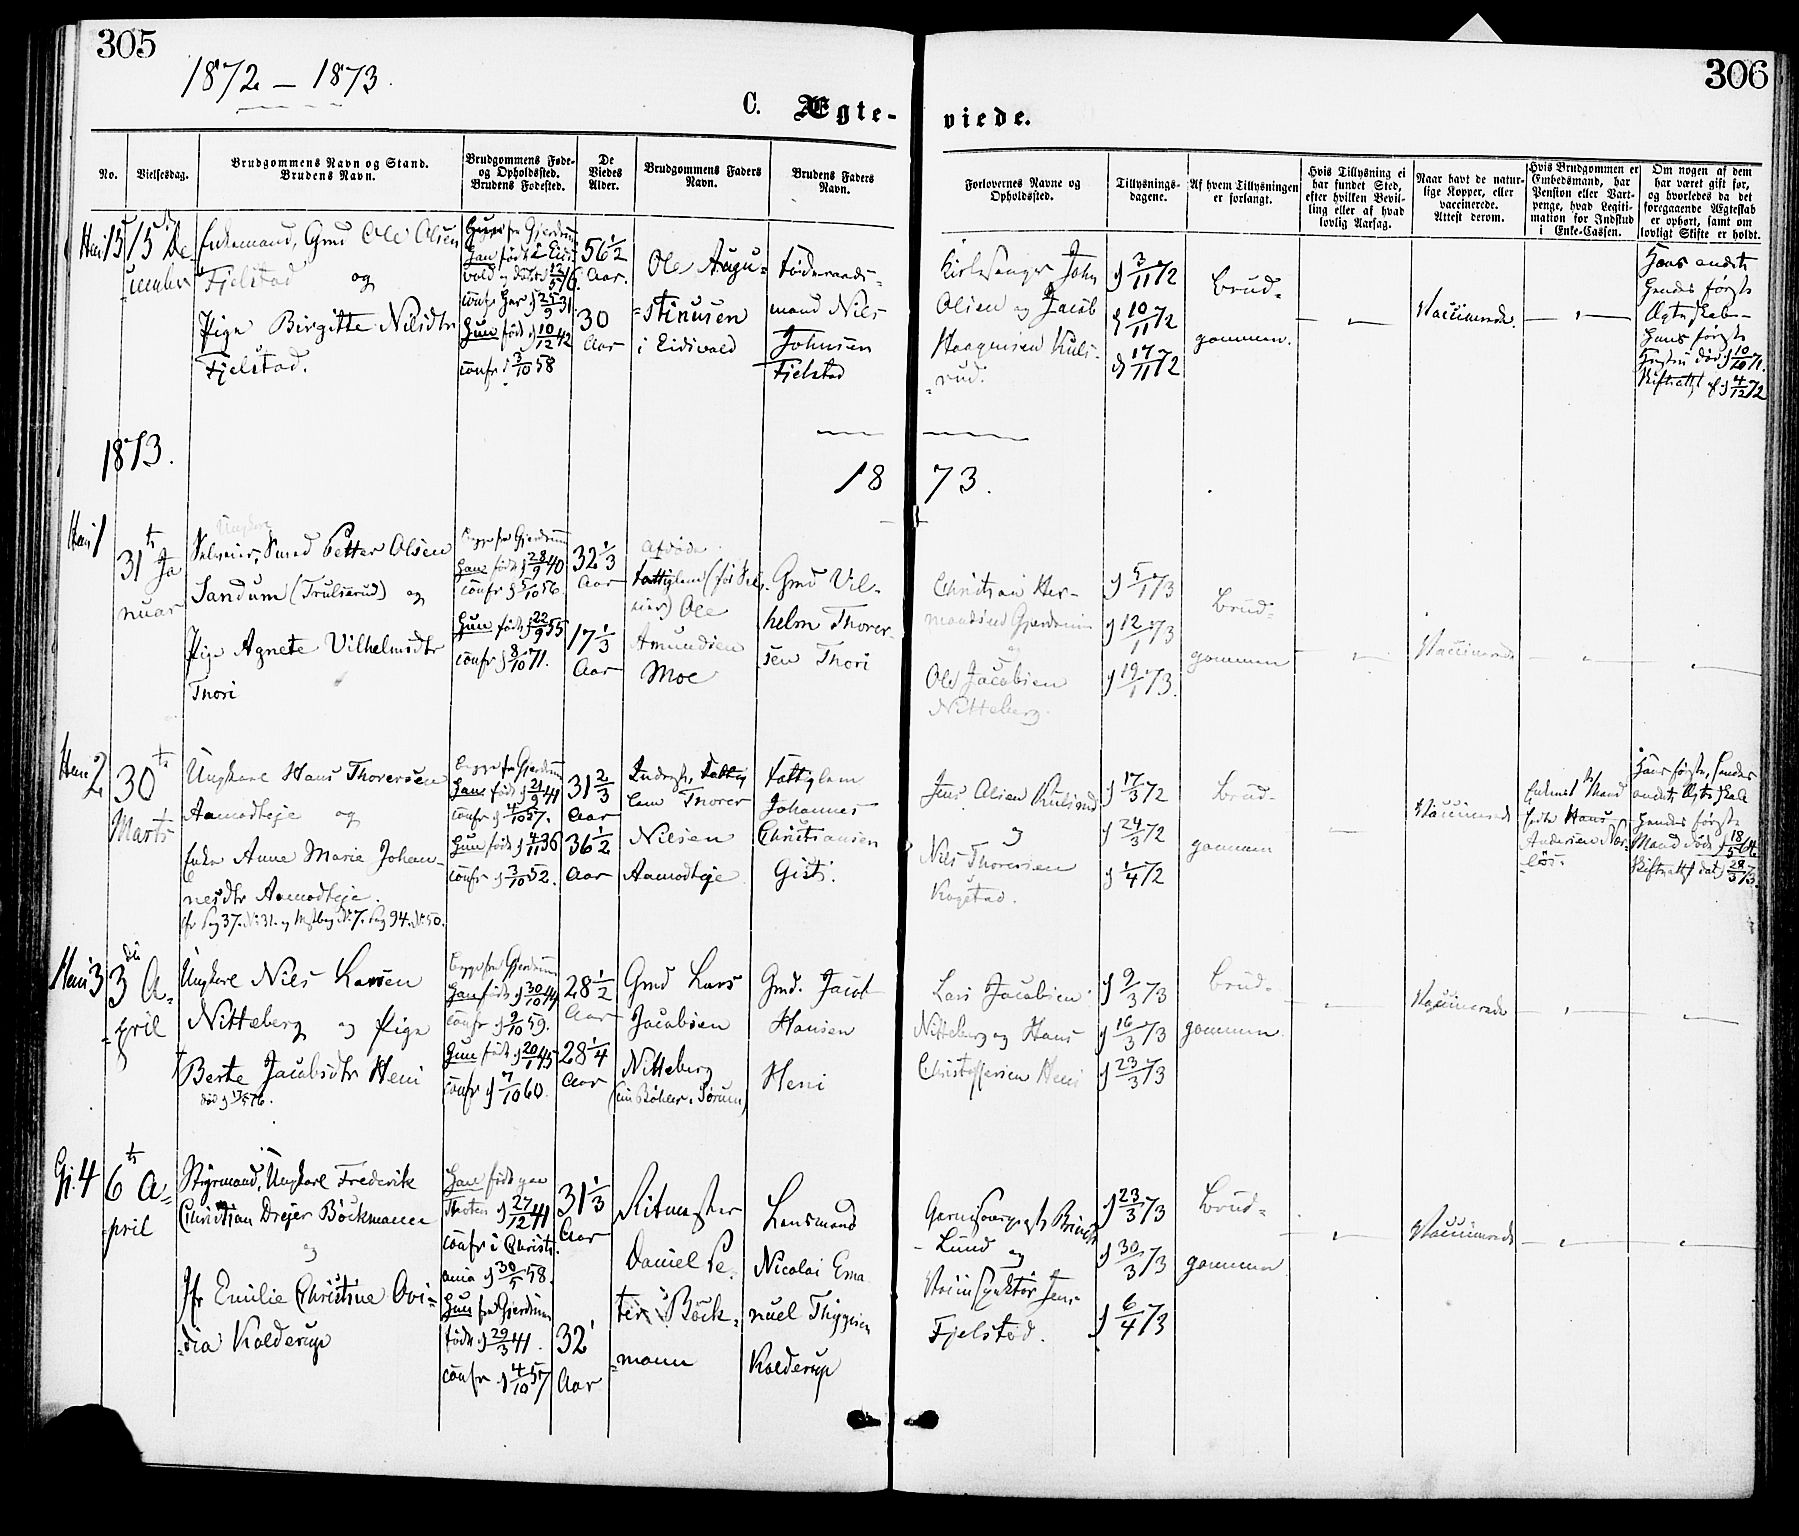 305
306
1872 – 1873.
C. Ægte-
viede.
No.
Vielsesdag.
Brudgommens Navn og Stand.
Brudens Navn.
Brudgommens Føde-
og Opholdssted.
Brudens Fødested.
De
Viedes
Alder.
Brudgommens Faders
Navn.
Brudens Faders
Navn.
Forlovernes Navne og
Opholdssted.
Tillysnings-
dagene.
Af hvem Tillysningen
er forlangt.
Hvis Tillysning ei
har fundet Sted,
efter hvilken Bevil-
ling eller af hvad
lovlig Aarsag.
Naar havt de natur-
lige Kopper, eller
vaccinerede.
Attest derom.
Hvis Brudgommen er
Embedsmand, har
Pension eller Vart-
penge, hvad Legiti-
mation for Indskud
i Enke-Cassen.
Om nogen af dem
har været gift før,
og hvorledes da det
foregaaende Ægteskab
er ophørt, samt om
lovligt Skifte er holdt.
Heni 15
15 De
=cember
Enkemand, Gmd Ole Olsen
Fjelstad og
Pige Birgitte Nilsdtr
Fjelstad.
fra Gjerdrum
Han født i Eids
vold
confr
Hun født 10/12 42
confr 3/10 58
56 1/2
Aar.
30
Aar
Ole Augu=
=stinusen
i Eidsvold
Föderaads-
mand Nils
Johnsen
Fjelstad
Kirkesanger John
Olsen og Jacob
Haagensen Kuls-
rud.
3/11 72
10/11 72
17/11 72
Brud-
gommen.
Vaccinerede.
Hans andet
Hendes første
Ægteskab-
Hans første
død 10/10 71.
Skifteattst 4/12 72
1873.
18 73.
Heni 1
31 Ja
nuar
Ungkarl
Selveier, Smed Petter Olsen
Sandum (Trulserud) og
Pige Agnete Vilhelmsdtr
Thori
Begge fra Gjerdrum
Han født 28/9 40
confr 5/10 56.
Hun født 22/9 55
confr 8/10 71.
32 1/3
Aar
17 1/3
Aar
Afdøde
Fattiglem (før Sel
veier) Ole
Amundsen
Moe
Gmd Vil-
helm Thorer-
sen Thori
Christian Her-
mandsen Gjerdrum
og
Ole Jacobsen
Nitteberg.
5/1 73
12/1 73
19/1 73.
Brud-
gommen
Vaccinerede
Heni 2
30
Marts
Ungkarl Hans Thorersen
Aamodteje og
Enke Anne Marie Johan-
nesdtr Aamodteje.
Begge fra Gjerdrum
Han født 21/9 41
confr 4/10 57.
Hun født 4/11 36
confr 3/10 52.
31 2/3
Aar
36 1/2
Aar
Inderst, Fattig
lem Thorer
Nilsen
Aamodteje
Fattiglem
Johannes
Christiansen
Gisti.
Jens Olsen Kulsrud
og
Nils Thorersen
Kogstad.
17/3 72
24/3 72
1/4 72
Brud-
gommen
Vaccinerede
Enkens Mand
hedte Hans
Andersen
Hans første, hendes
andet Ægteskab
Hendes første
Mand døde 18/5 64.
Skifteattst dat 28/3 73.
Heni 3
3 A-
=pril
Ungkarl Nils Larsen
Nitteberg og Pige
Berte Jacobsdtr Heni
Begge fra Gjerdrum
Han født 30/10 44
confr 9/10 59.
Hun født 20/1 45
confr 7/10 60.
28 1/2
Aar
28 1/4
Aar
Gmd Lars
Jacobsen
Nitteberg
Gmd. Jacob
Hansen
Heni
Lars Jacobsen
Nitteberg og Hans
Christoffersen Heni
9/3 73
16/3 73
23/3 73
Brud-
gommen
Vaccinerede
Gj. 4
6 A=
pril
Styrmand, Ungkarl Frederik
Christian Drejer Böckmann
og
Jfr Emilie Christine Ovi=
=dia Kolderup
Han født paa
Thoten 27/12 41
confr i Christi.
ania 30/5 58.
Hun fra Gjerdrum
født 29/3 41.
confr 4/10 57
31 1/3
Aar
32
Aar
Ritmester
Daniel Pe-
ter Böck=
=mann
Lensmand
Nicolai Ema
nuel Thygesen
Kolderup
Lund og
Jens
Fjelstad.
23/3 73
30/3 73
6/4 73
Brud=
gommen
Vaccinerede